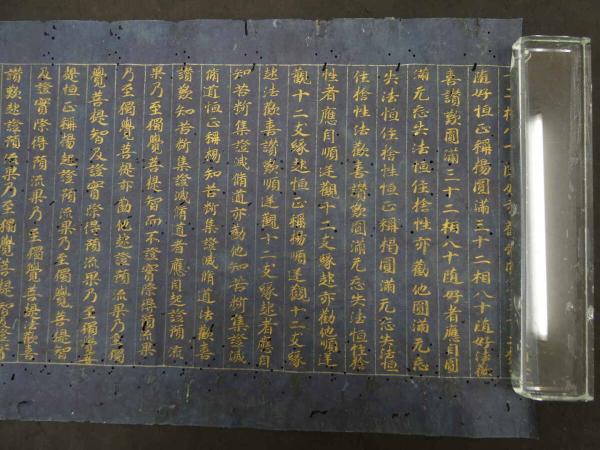 二相八十随好
随好恒正稱揚圓滿三十二相八十随好法歡
喜讃歎圓滿三十二相八十随好者應自圓
滿无忘失法恒住捨性亦勸他圓滿无忘
失法恒住捨性恒正稱揚圓滿无忘失法恒
住捨性法歡喜讃歎圓滿无忘失法恒住捨
性者應自順逆觀十二支緣起亦勸他順逆
觀十二支緣起恒正稱揚順逆觀十二支緣
起法歡喜讃歎順逆觀十二支緣起者應自
知苦断集證滅脩道亦勸他知苦断集證滅
脩道恒正稱揚知苦断集證滅脩道法歡喜
讃歎知苦断集證滅脩道者應自起證預流
果乃至獨覺菩提智而不證實際得預流果
乃至獨覺菩提亦勸他起證預流果乃至獨
覺菩提智及證實際得預流果乃至獨覺菩
提恒正稱揚起證預流果乃至獨覺菩提智
及證實際得預流果乃至獨覺菩提法歡喜
讃歎起證預流果乃至獨覺菩提智及證實